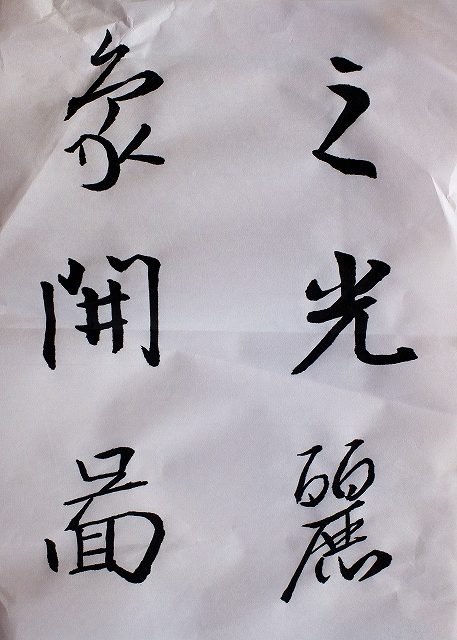 之光麗
象開圖